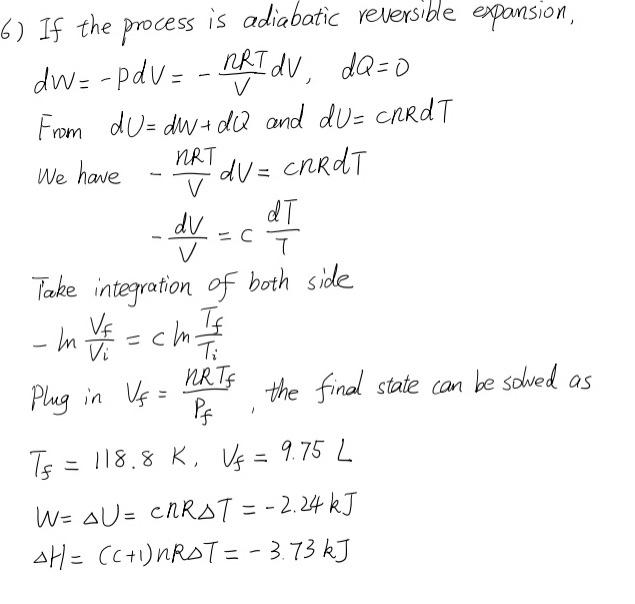 6) If the process is adiabatic reversible expansion,
dW = -PdV = - nRT/V dV, dQ = 0
From dU = dW + dQ and dU = cnRdT
We have - nRT/V dV = cnRdT
- dV/V = c dT/T
Take integration of both side
- ln Vf/Vi = c ln Tf/Ti
Plug in Vf = nRTf/Pf, the final state can be solved as
Tf = 118.8 K, Vf = 9.75 L
W = ΔU = cnRΔT = -2.24 kJ
ΔH = (c+1)nRΔT = -3.73 kJ